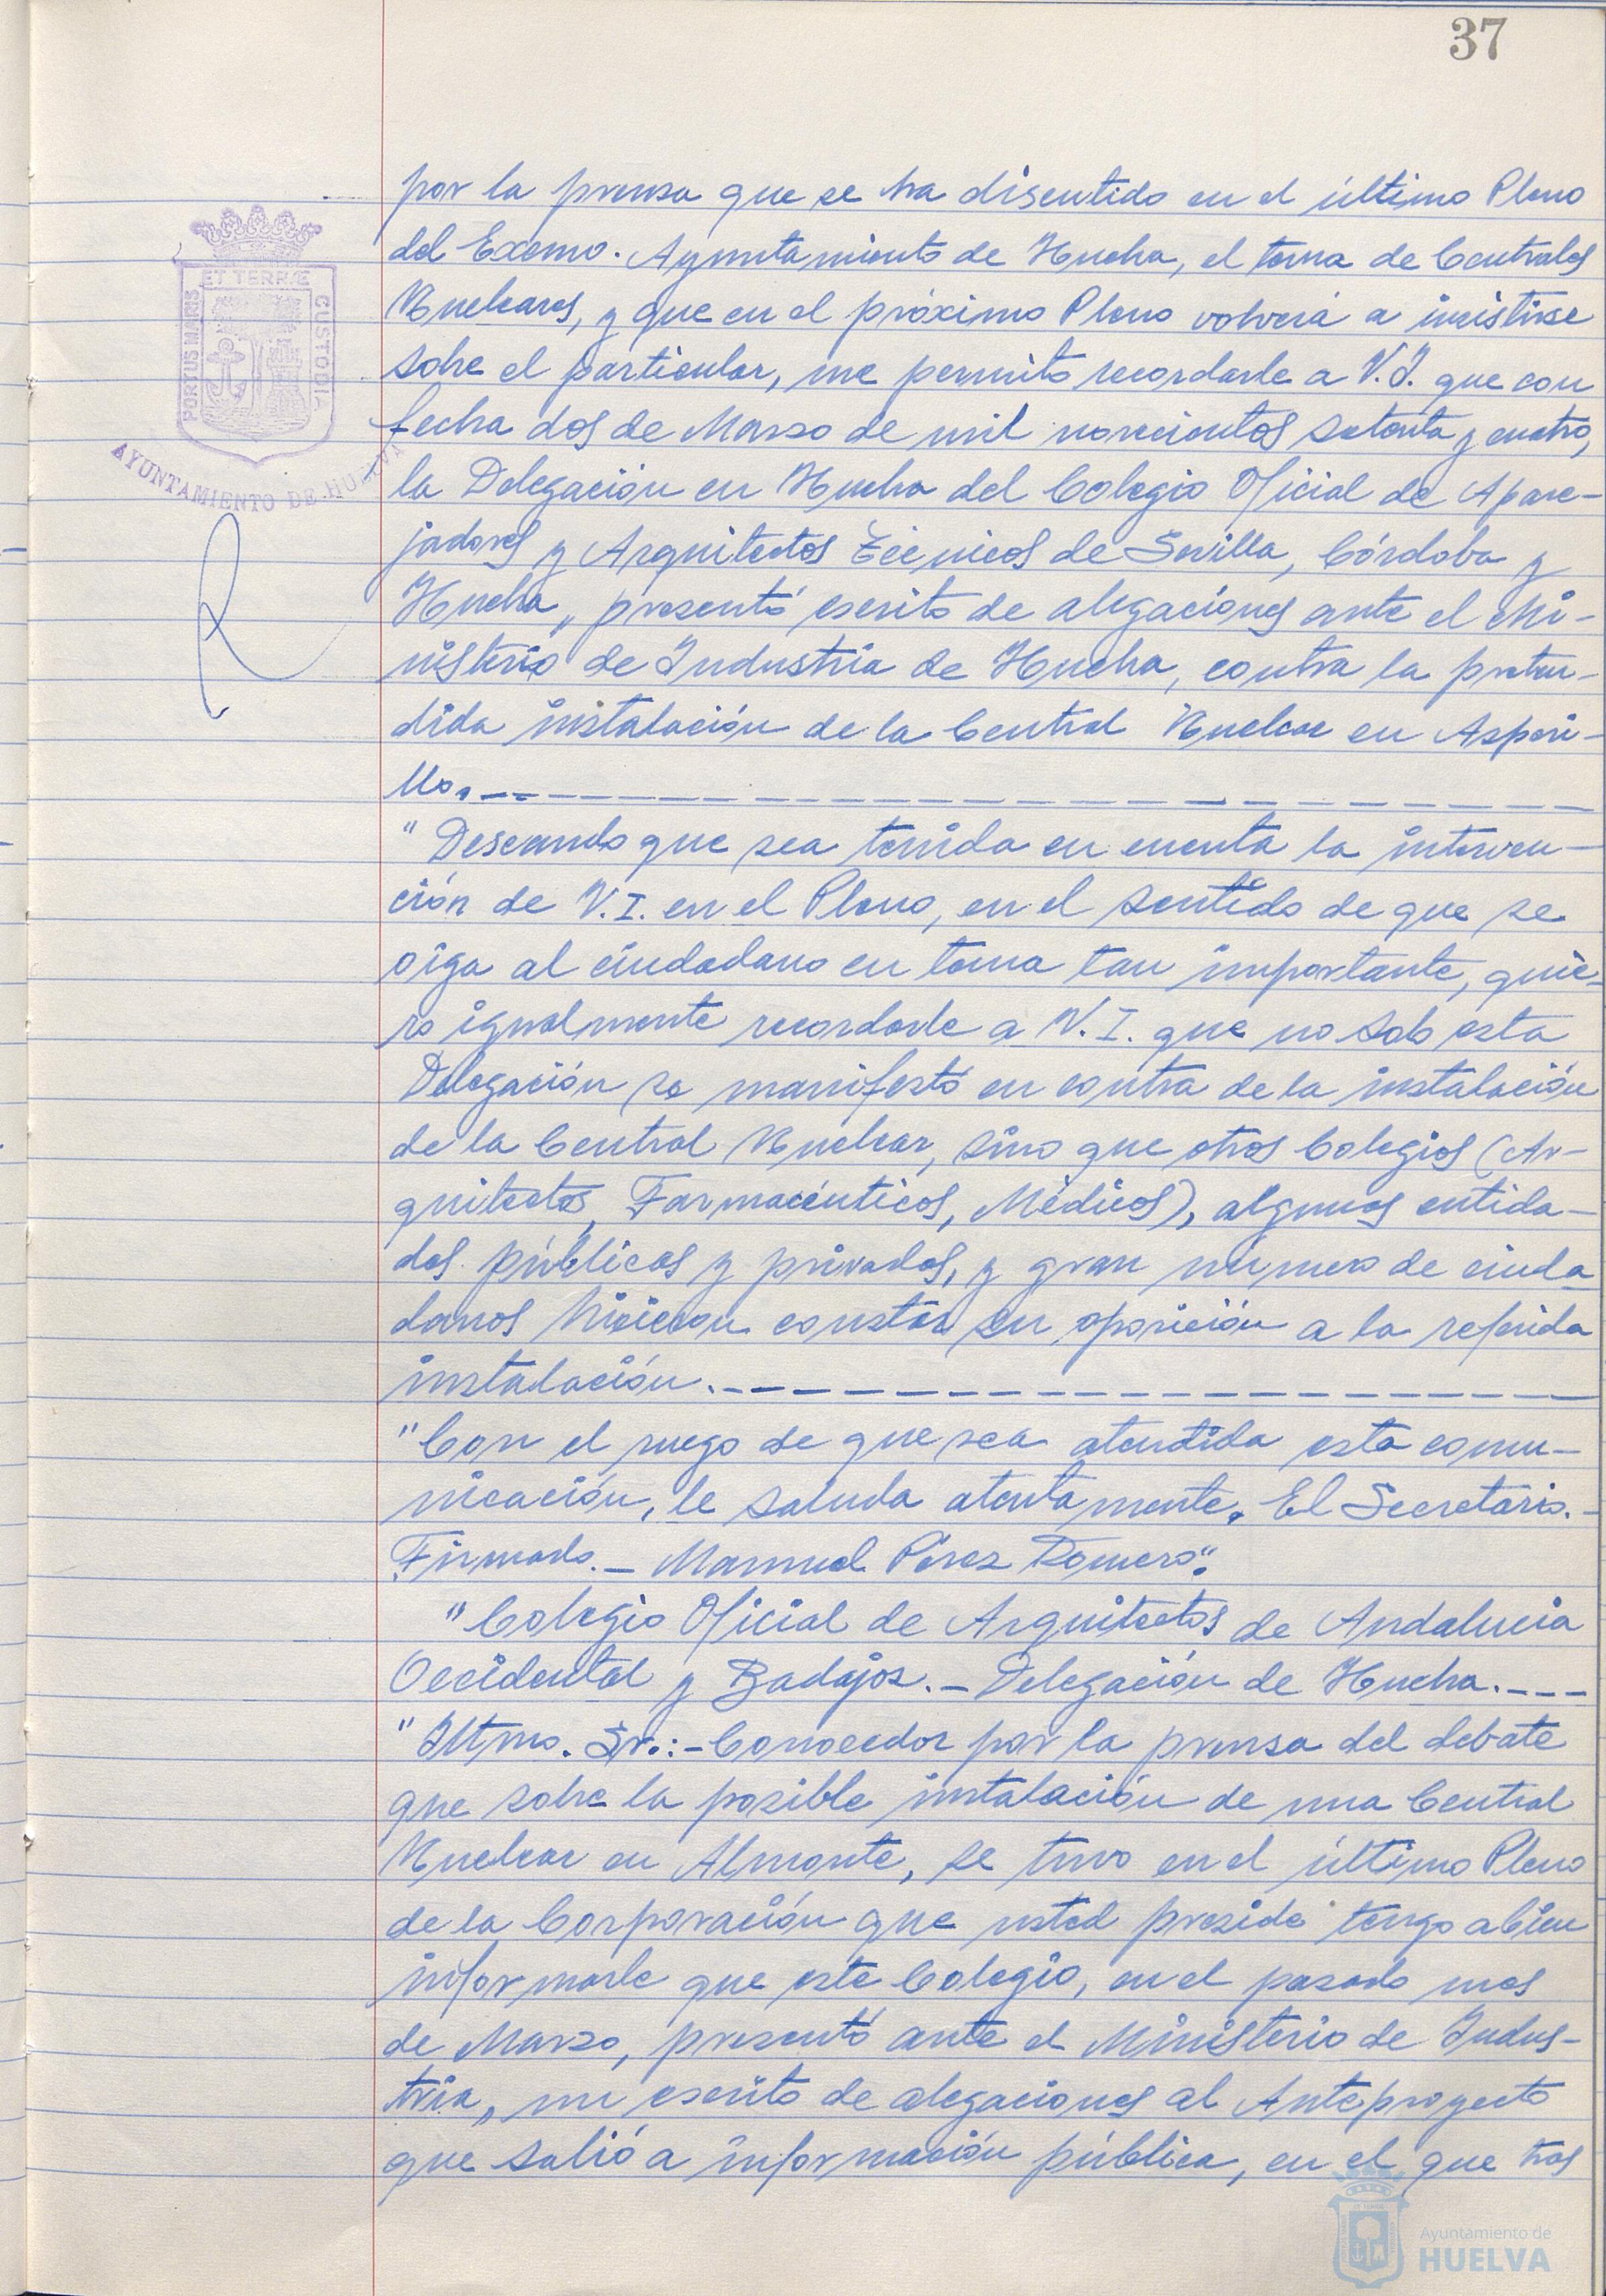 37
por la prensa que se ha discutido en el último Pleno
del Excmo. Ayuntamiento de Huelva, el tema de Centrales
Nucleares, y que en el próximo Pleno volverá a insistirse
sobre el particular, me permito recordarle a V.I. que con
fecha dos de Marzo de mil novecientos setenta y cuatro,
la Delegación en Huelva del Colegio Oficial de Apare-
jadores y Arquitectos Técnicos de Sevilla, Córdoba y
Huelva, presentó escrito de alegaciones ante el Mi-
nisterio de Industria de Huelva, contra la preten-
dida instalación de la Central Nuclear en Asperi-
llo.
"Deseando que sea tenida en cuenta la interven-
ción de V.I. en el Pleno, en el sentido de que se
oiga al ciudadano en tema tan importante, quie-
ro igualmente recordarle a V.I. que no solo esta
Delegación se manifestó en contra de la instalación
de la Central Nuclear, sino que otros Colegios (Ar-
quitectos, Farmacéuticos, Médicos), algunas entida-
des públicas y privadas, y gran número de ciuda
danos hicieron constar su oposición a la referida
instalación.
"Con el ruego de que sea atendida esta comu-
nicación, le saluda atentamente. El Secretario.-
Firmado.- Manuel Pérez Romero".
"Colegio Oficial de Arquitectos de Andalucia
Occidental y Badajoz.- Delegación de Huelva.---
"Iltmo. Sr.:- Conocedor por la prensa del debate
que sobre la posible instalación de una Central
Nuclear en Almonte, se tuvo en el último Pleno
de la Corporación que usted preside tengo a bien
informarle que este Colegio, en el pasado mes
de Marzo, presentó ante el Ministerio de Indus-
tria, un escrito de alegaciones al Anteproyecto
que salió a información pública, en el que tras
PORTUS MARIS
ET TERRÆ
CUSTODIA
AYUNTAMIENTO DE HUELVA
Ayuntamiento de
HUELVA